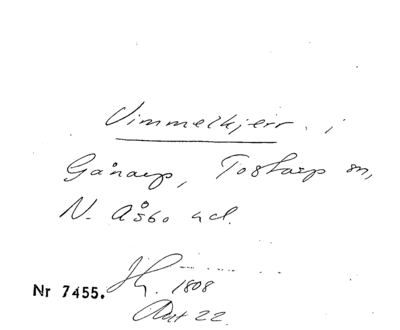 Vimmelkjerr i
Gånarp, Tostarp sn,
N. Åsbo hd.
1808
Nr 7455.
22